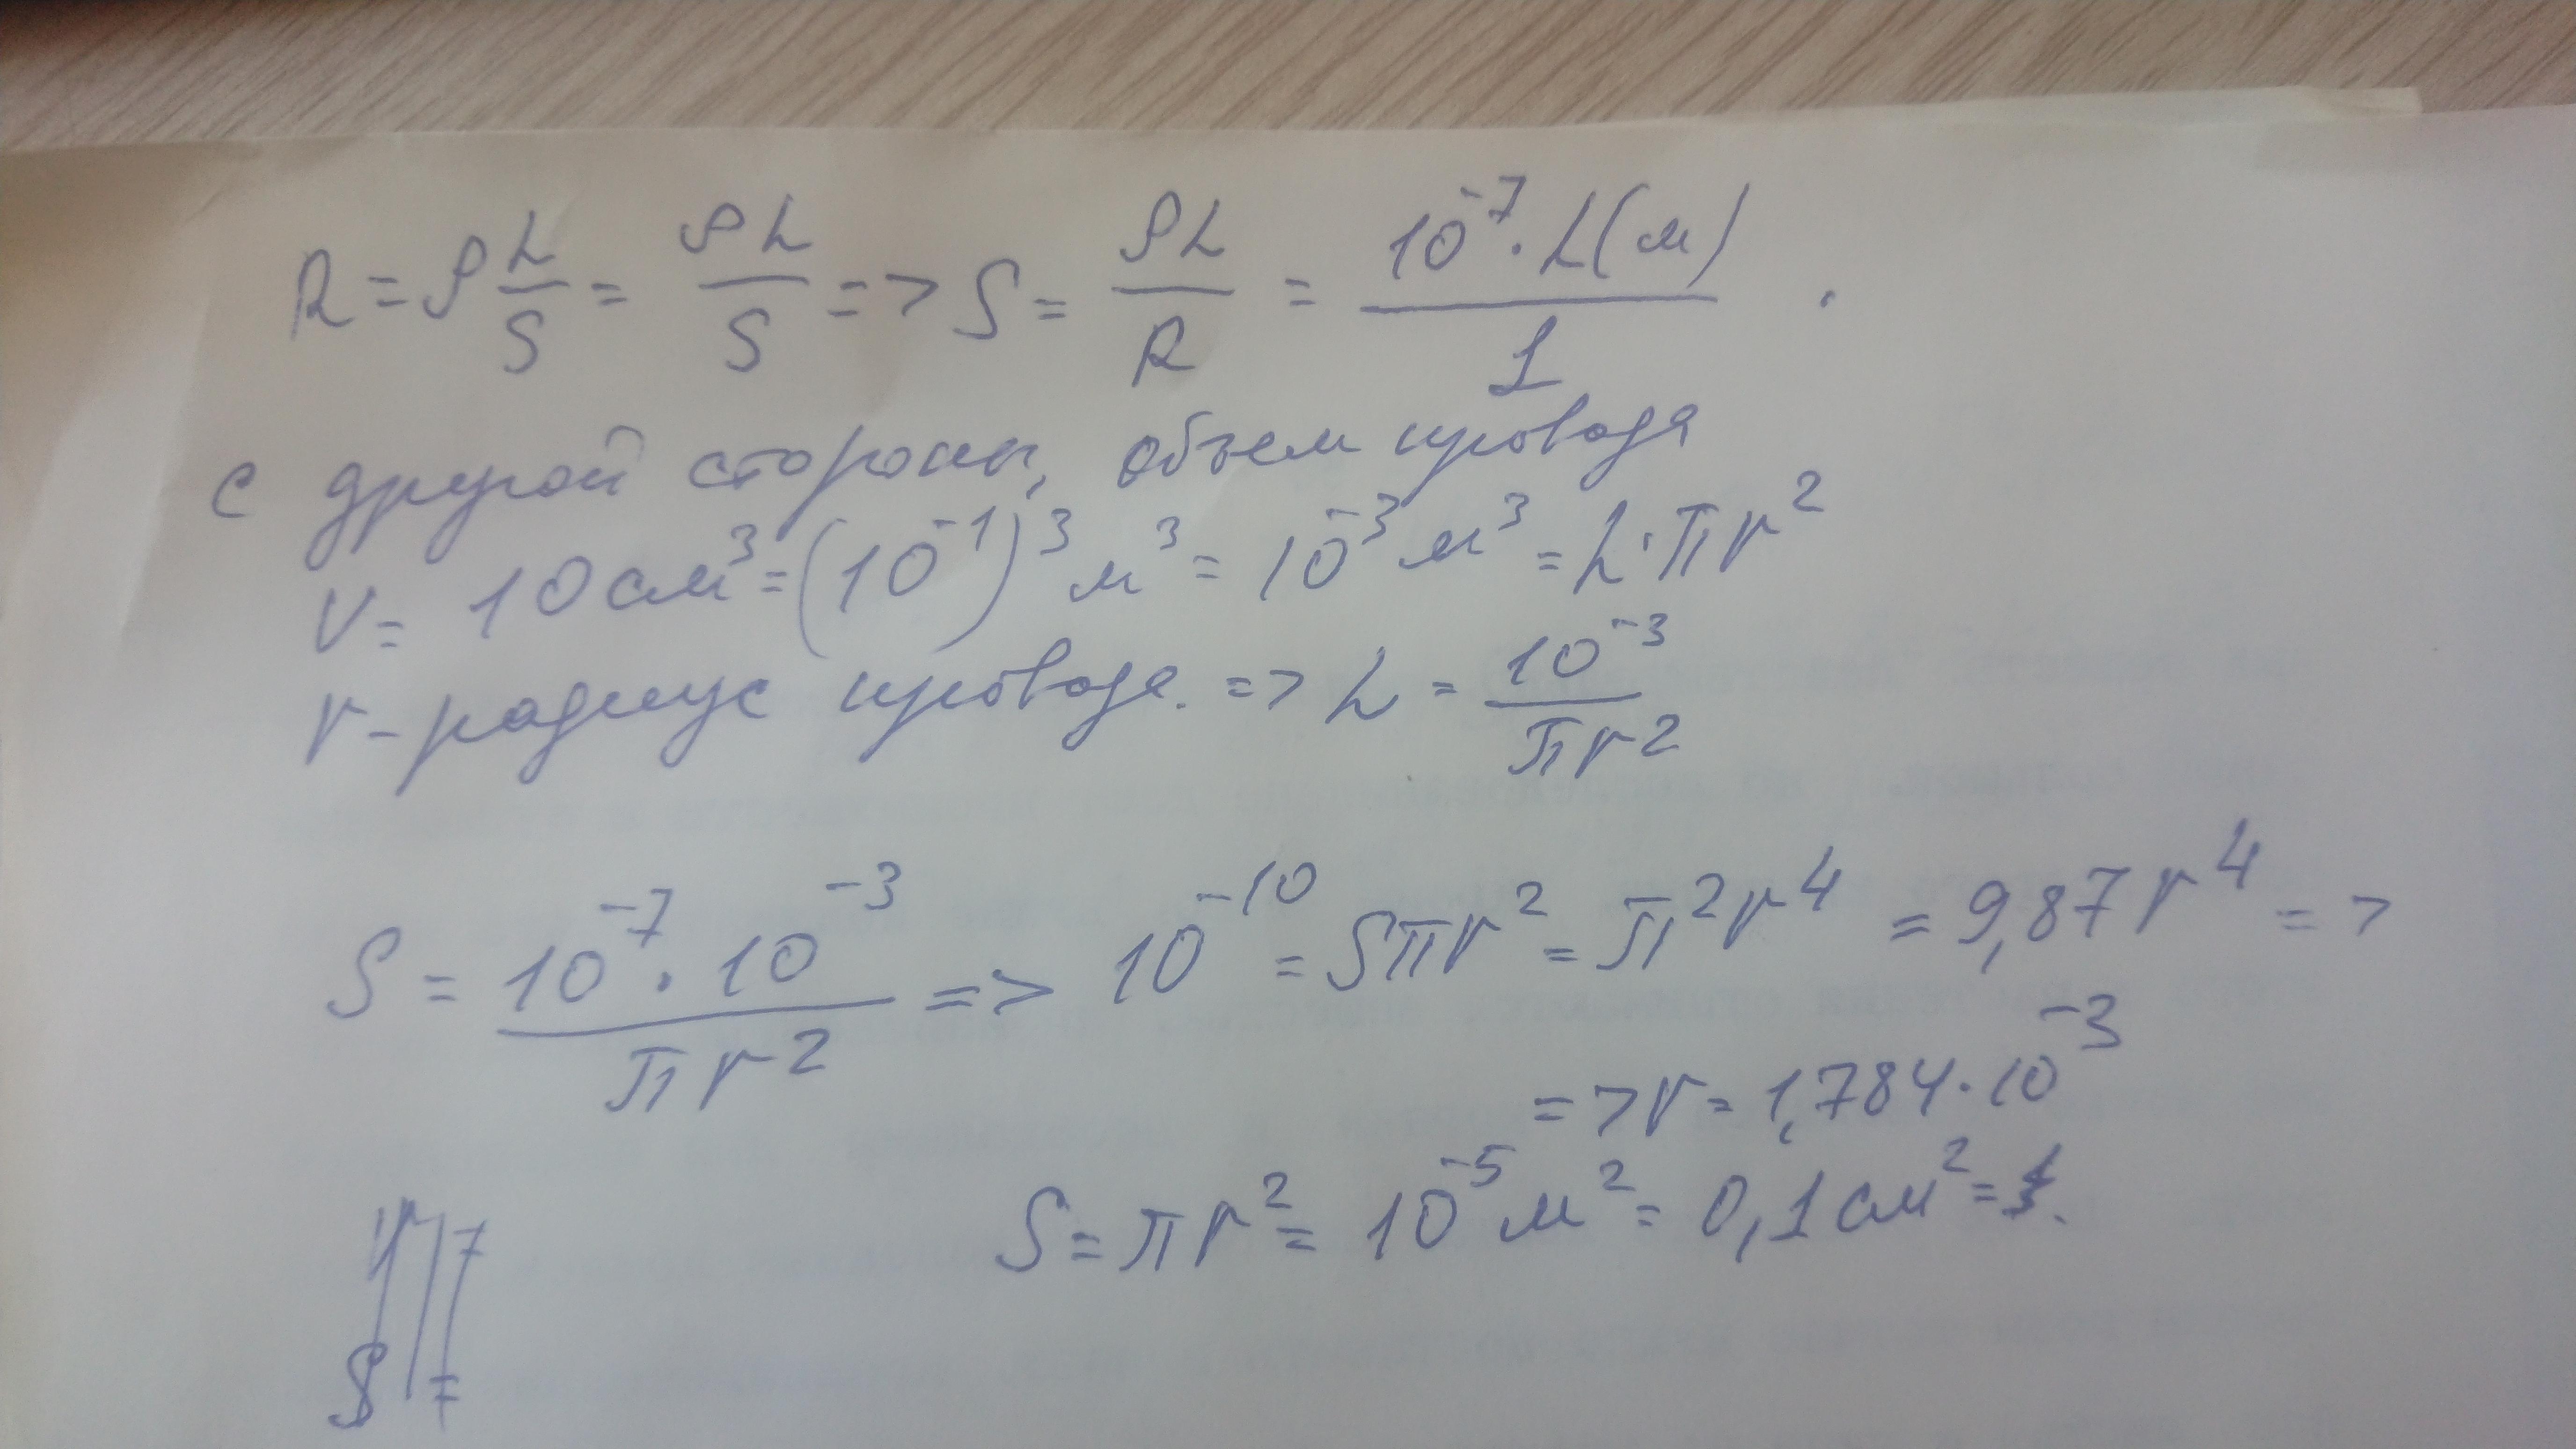 R = ρ L/S = ρL/S => S = ρL/R = 10⁻⁷ · L(м)/1 .
с другой стороны, объем провода
V = 10 см³ = (10⁻¹)³ м³ = 10⁻³ м³ = L · πr²
r - радиус провода. => L = 10⁻³/πr²
S = 10⁻⁷ · 10⁻³/πr² => 10⁻¹⁰ = Sπr² = π²r⁴ = 9,87 r⁴ =>
=> r = 1,784 · 10⁻³
S = πr² = 10⁻⁵ м² = 0,1 см² =